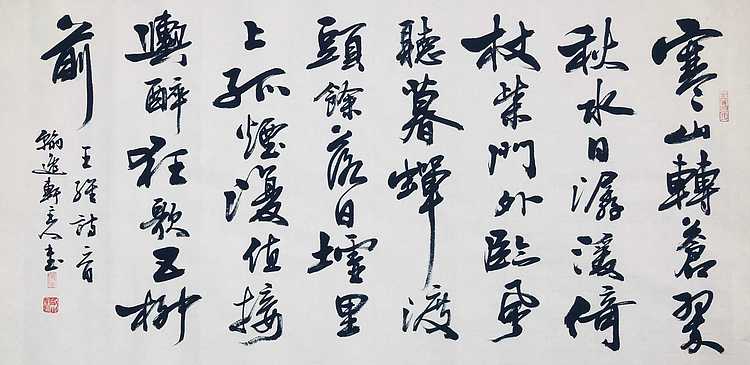 寒山轉蒼翠
秋水日潺湲倚
杖柴門外臨風
聽暮蟬渡
頭餘落日墟里
上孤煙復值接
輿醉狂歌五柳
前
王維詩一首
翰逸軒主人書